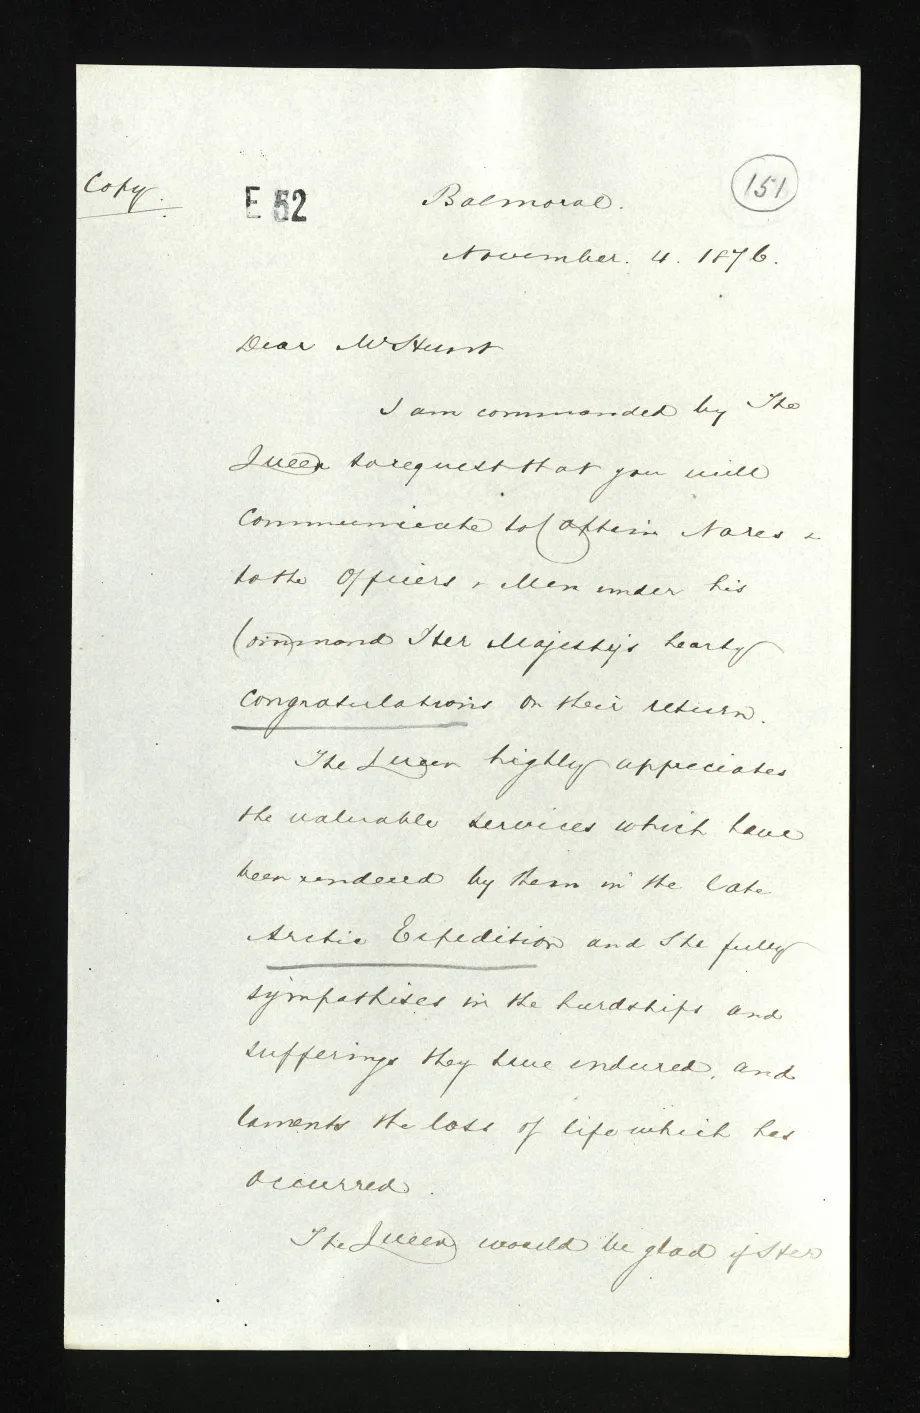 Copy.
E 52
151
Balmoral.
November. 4. 1876.
Dear Mr Hunt
I am commanded by The
Queen to request that you will
communicate to Captain Nares &
to the Officers & Men under his
Command Her Majesty's hearty
congratulations on their return.
The Queen highly appreciates
the valuable services which have
been rendered by them in the late
Arctic Expedition and She fully
sympathises in the hardships and
sufferings they have endured. and
laments the loss of life which has
occurred.
The Queen would be glad if Her